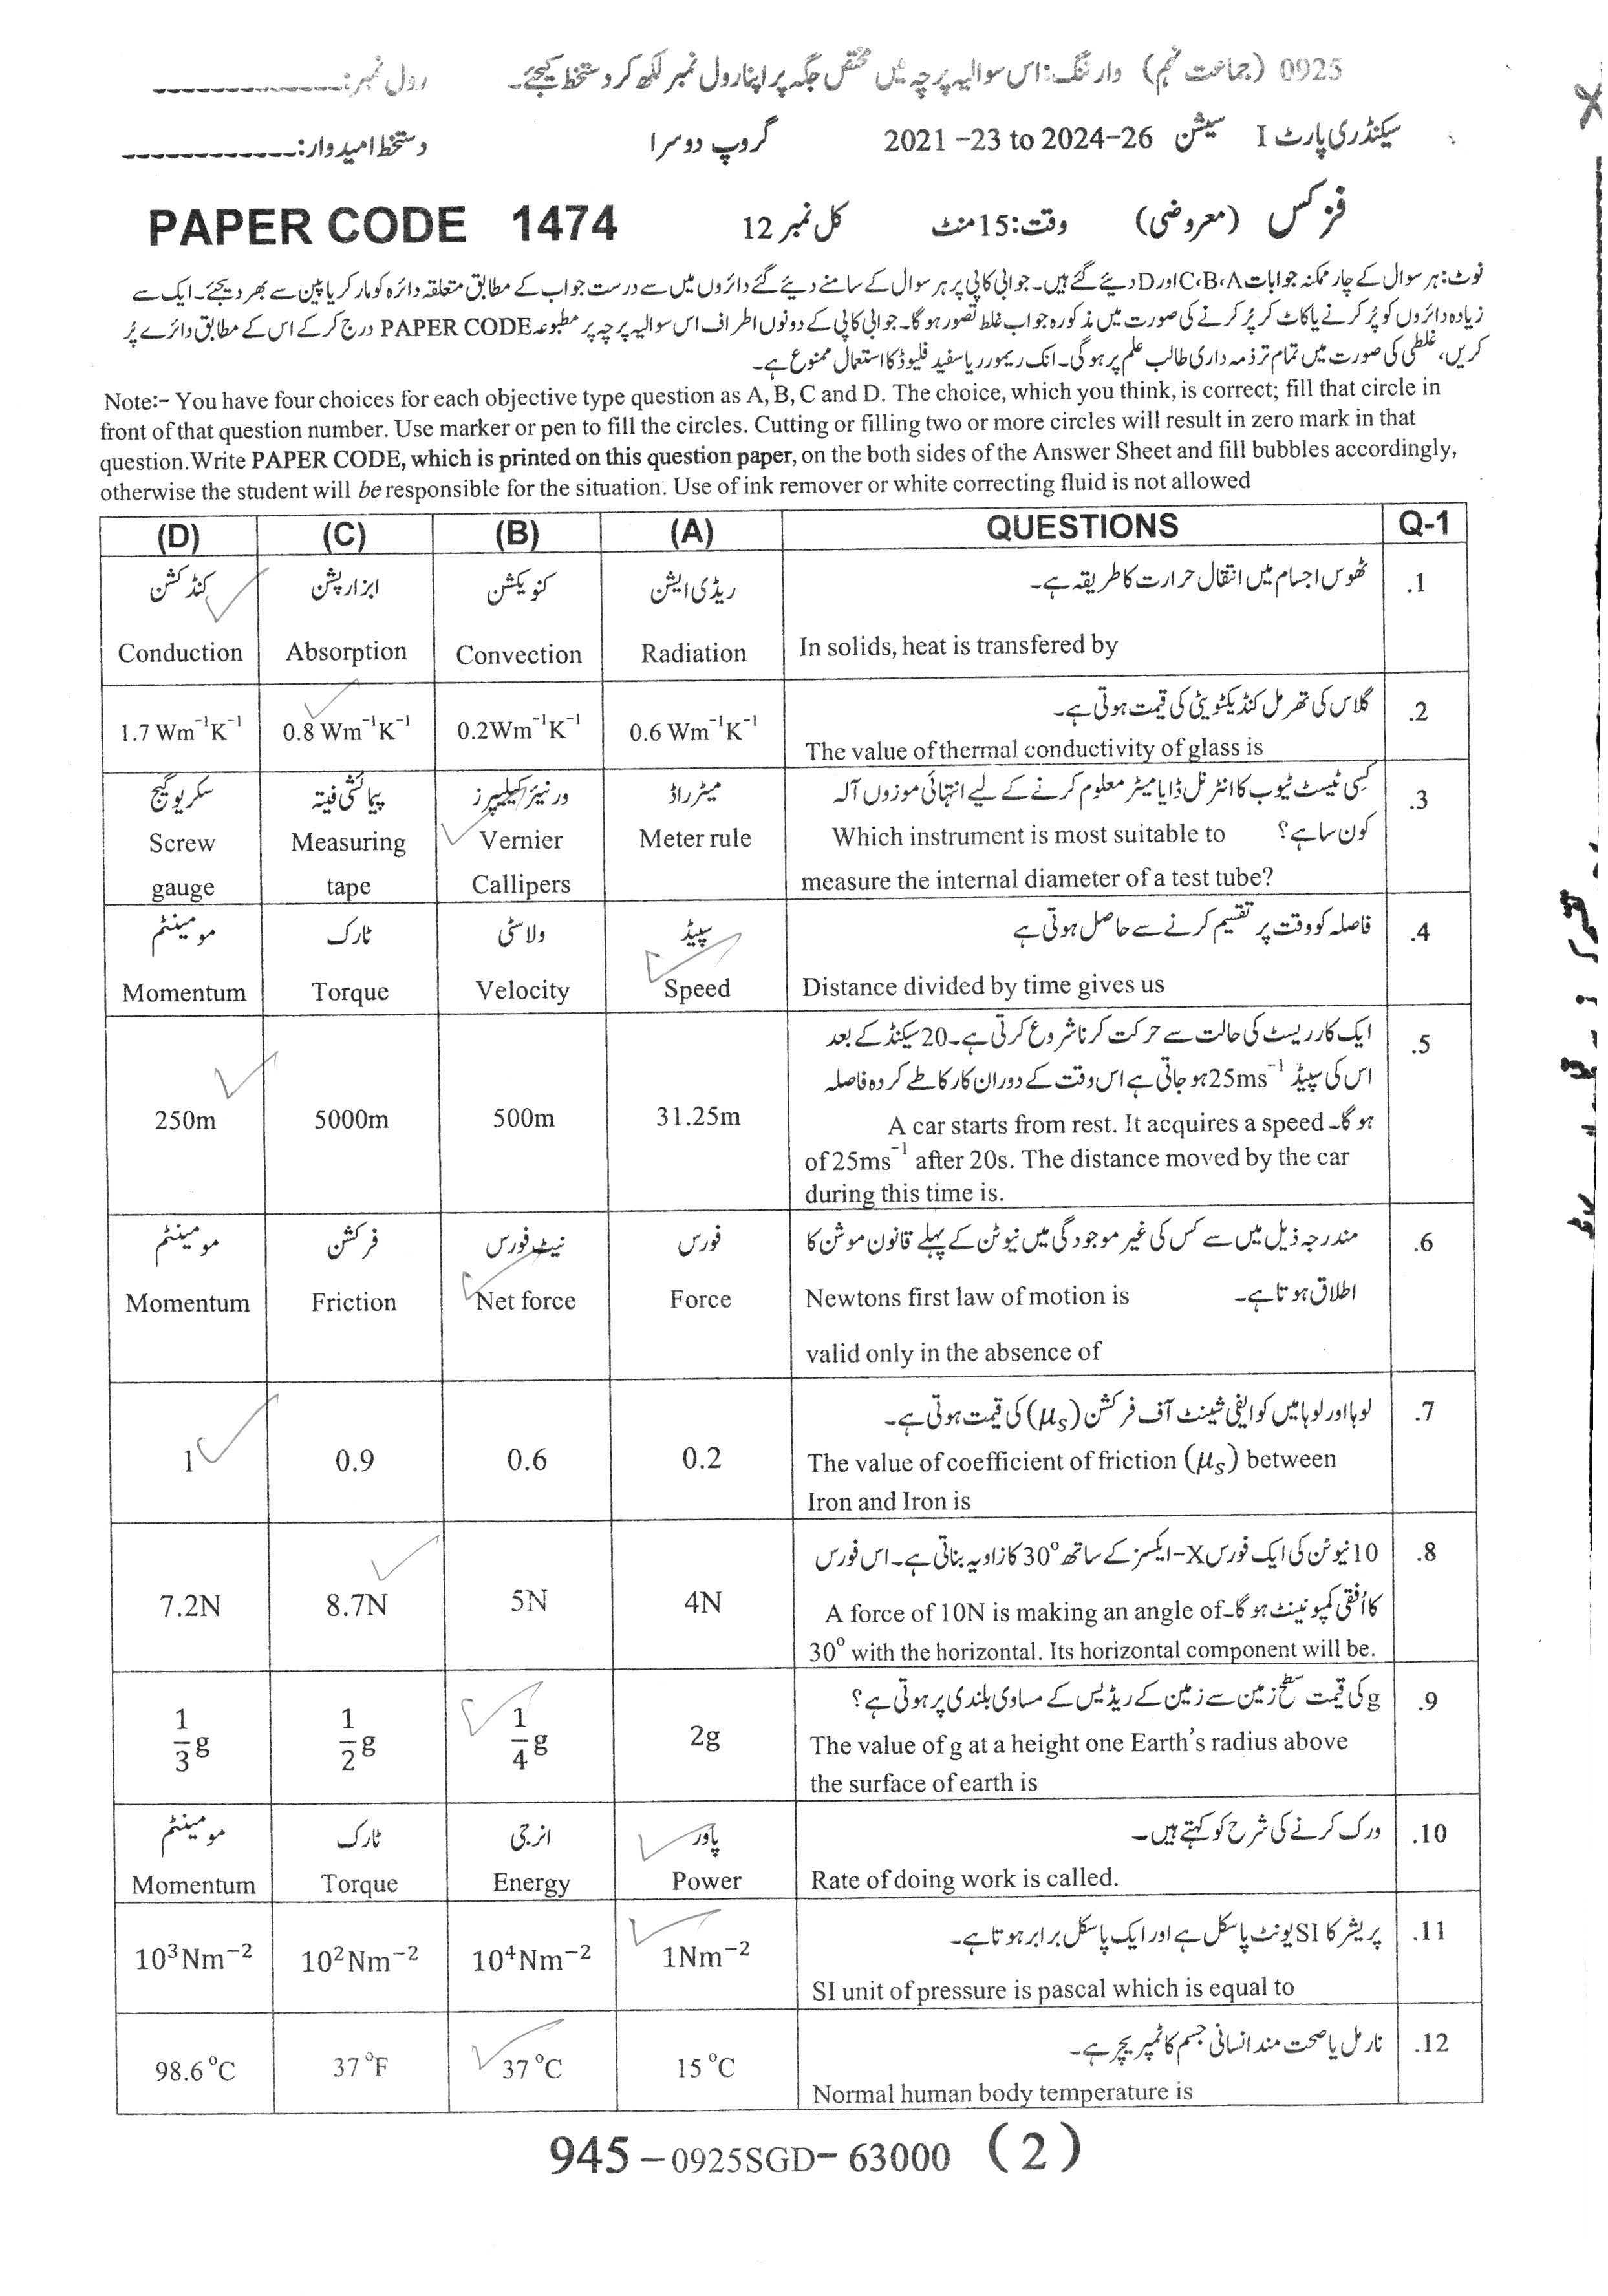 0925 (جماعت نہم) وارننگ: اس سوالیہ پرچہ میں مختص جگہ پر اپنا رول نمبر لکھ کر دستخط کیجئے۔ رول نمبر:
سیکنڈری پارٹ I سیشن 2021 –23 to 2024–26 گروپ دوسرا دستخط امیدوار:
فزکس (معروضی) وقت: 15 منٹ کل نمبر 12 PAPER CODE 1474
نوٹ: ہر سوال کے چار ممکنہ جوابات C،B،A اور D دیئے گئے ہیں۔ جوابی کاپی پر ہر سوال کے سامنے دیئے گئے دائروں میں سے درست جواب کے مطابق متعلقہ دائرہ کو مارکر یا پین سے بھر دیجئے۔ ایک سے
زیادہ دائروں کو پُر کرنے یا کاٹ کر پُر کرنے کی صورت میں مذکورہ جواب غلط تصور ہو گا۔ جوابی کاپی کے دونوں اطراف اس سوالیہ پرچہ پر مطبوعہ PAPER CODE درج کر کے اس کے مطابق دائرے پُر
کریں، غلطی کی صورت میں تمام تر ذمہ داری طالب علم پر ہو گی۔ انک ریمور یا سفید فلیوڈ کا استعمال ممنوع ہے۔
Note:- You have four choices for each objective type question as A, B, C and D. The choice, which you think, is correct; fill that circle in
front of that question number. Use marker or pen to fill the circles. Cutting or filling two or more circles will result in zero mark in that
question.Write PAPER CODE, which is printed on this question paper, on the both sides of the Answer Sheet and fill bubbles accordingly,
otherwise the student will be responsible for the situation. Use of ink remover or white correcting fluid is not allowed
(D) (C) (B) (A) QUESTIONS Q-1
کنڈکشن ابزارپشن کنویکشن ریڈی ایشن ٹھوس اجسام میں انتقال حرارت کا طریقہ ہے۔ .1
Conduction Absorption Convection Radiation In solids, heat is transfered by
گلاس کی تھرمل کنڈیکٹویٹی کی قیمت ہوتی ہے۔ .2
1.7 Wm⁻¹K⁻¹ 0.8 Wm⁻¹K⁻¹ 0.2Wm⁻¹K⁻¹ 0.6 Wm⁻¹K⁻¹ The value of thermal conductivity of glass is
سکریو گیج پیمائشی فیتہ ورنیئر کیلیپرز میٹر راڈ کسی ٹیسٹ ٹیوب کا انٹرنل ڈایا میٹر معلوم کرنے کے لیے انتہائی موزوں آلہ .3
Screw Measuring Vernier Meter rule Which instrument is most suitable to کون سا ہے؟
gauge tape Callipers measure the internal diameter of a test tube?
مومینٹم ٹارک ولاسٹی سپیڈ فاصلہ کو وقت پر تقسیم کرنے سے حاصل ہوتی ہے .4
Momentum Torque Velocity Speed Distance divided by time gives us
ایک کار ریسٹ کی حالت سے حرکت کرنا شروع کرتی ہے۔ 20 سیکنڈ کے بعد .5
اس کی سپیڈ 25ms⁻¹ ہو جاتی ہے اس وقت کے دوران کار کا طے کردہ فاصلہ
250m 5000m 500m 31.25m A car starts from rest. It acquires a speed ہو گا۔
of 25ms⁻¹ after 20s. The distance moved by the car
during this time is.
مومینٹم فرکشن نیٹ فورس فورس مندرجہ ذیل میں سے کس کی غیر موجودگی میں نیوٹن کے پہلے قانون موشن کا .6
Momentum Friction Net force Force Newtons first law of motion is اطلاق ہوتا ہے۔
valid only in the absence of
لوہا اور لوہا میں کوایفی شینٹ آف فرکشن (μₛ) کی قیمت ہوتی ہے۔ .7
1 0.9 0.6 0.2 The value of coefficient of friction (μₛ) between
Iron and Iron is
10 نیوٹن کی ایک فورس X-ایکسز کے ساتھ 30° کا زاویہ بناتی ہے۔ اس فورس .8
7.2N 8.7N 5N 4N A force of 10N is making an angle of کا اُفقی کمپونینٹ ہو گا۔
30° with the horizontal. Its horizontal component will be.
g کی قیمت سطح زمین سے زمین کے ریڈیس کے مساوی بلندی پر ہوتی ہے؟ .9
1/3 g 1/2 g 1/4 g 2g The value of g at a height one Earth's radius above
the surface of earth is
مومینٹم ٹارک انرجی پاور ورک کرنے کی شرح کو کہتے ہیں۔ .10
Momentum Torque Energy Power Rate of doing work is called.
پریشر کا SI یونٹ پاسکل ہے اور ایک پاسکل برابر ہوتا ہے۔ .11
10³Nm⁻² 10²Nm⁻² 10⁴Nm⁻² 1Nm⁻² SI unit of pressure is pascal which is equal to
نارمل یا صحت مند انسانی جسم کا ٹمپریچر ہے۔ .12
98.6°C 37°F 37°C 15°C Normal human body temperature is
945 – 0925SGD – 63000 (2)